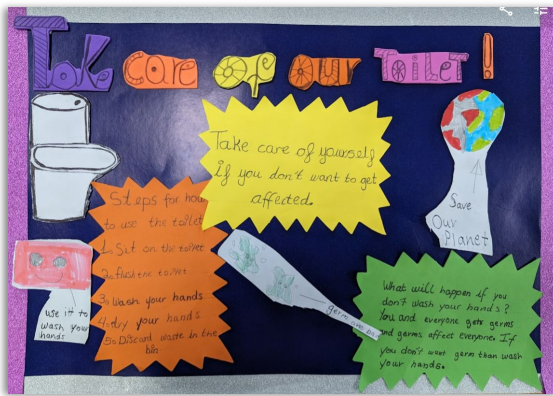 Take care of our toilet!
Take care of yourself
If you don't want to get
affected.
Steps for how
to use the toilet
1. Sit on the toilet
2. flush the toilet
3. Wash your hands
4. dry your hands
5. Discard waste in the
bin
Save
Our
Planet
use it to
wash your
hands
germs are
What will happen if you
don't wash your hands?
You and everyone gets germs
and germs affect everyone. If
you don't want germ than wash
your hands.